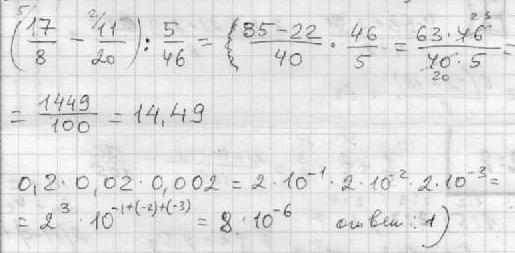 (⁵/17/8 − ²/11/20) : 5/46 = (85−22/40 · 46/5 = 63·46 23/40·5 20 =
= 1449/100 = 14,49
0,2 · 0,02 · 0,002 = 2·10⁻¹ · 2·10⁻² · 2·10⁻³ =
= 2³ · 10⁻¹⁺⁽⁻²⁾⁺⁽⁻³⁾ = 8·10⁻⁶ ответ: 1)